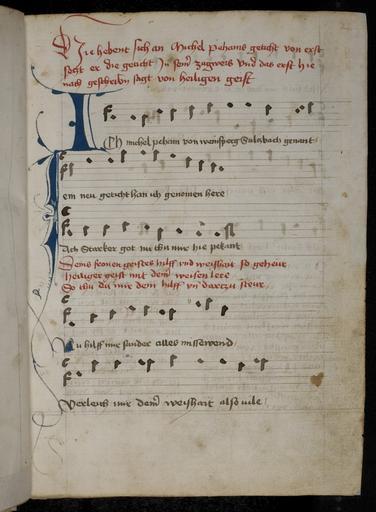 Hie hebent sich an Michel pehams geticht von erst
sagt er die geticht In sein zugweis vnd das erst hie
nach geschribn sagt von heiligen geist
Ich michel peham von weinsperg Sulzbach genant
ein neu geticht han ich genomen here
Ach Starcker got nu thu mir hie pekant
Deins fronen geistes hilff vnd weishait so geheur
heiliger geist mit deiner weisen lere
So thu du mir dein hilff vn darczu steur
Du hilff mir sunder alles missewend
Verleich mir deiner weishait also vile